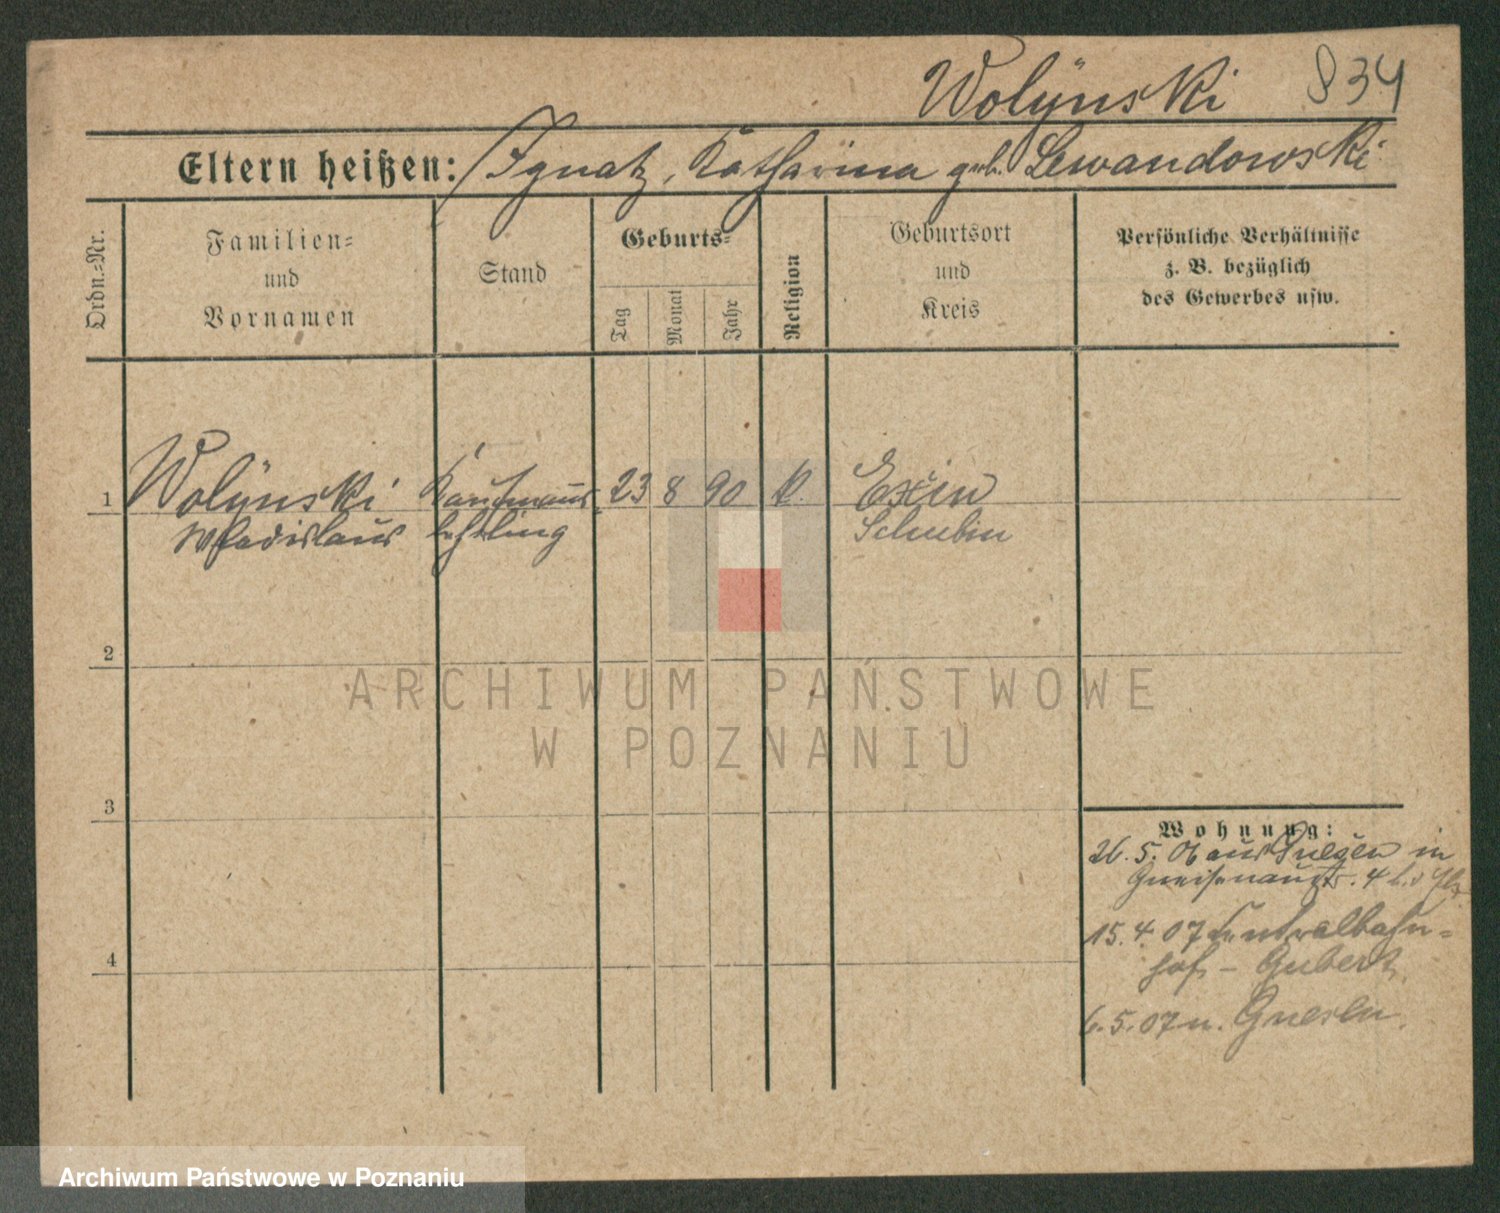 Wolÿnski 834
Eltern heißen: Ignatz, Katharina geb. Lewandowski
Ordn.=Nr.
Familien=
und
Vornamen
Stand
Geburts=
Tag
Monat
Jahr
Religion
Geburtsort
und
Kreis
Persönliche Verhältnisse
z. B. bezüglich
des Gewerbes usw.
1 Wolÿnski Kaufmanns 23 8 90 k. Exin
Wladislaus lehrling Schubin
2
ARCHIWUM PAŃSTWOWE
W POZNANIU
3
Wohnung:
26. 5. 06 aus Gnesen in
Gneisenaustr. 4 b.
15. 4. 07 Centralbahn=
hof -
6. 5. 07 n. Gnesen.
4
Archiwum Państwowe w Poznaniu